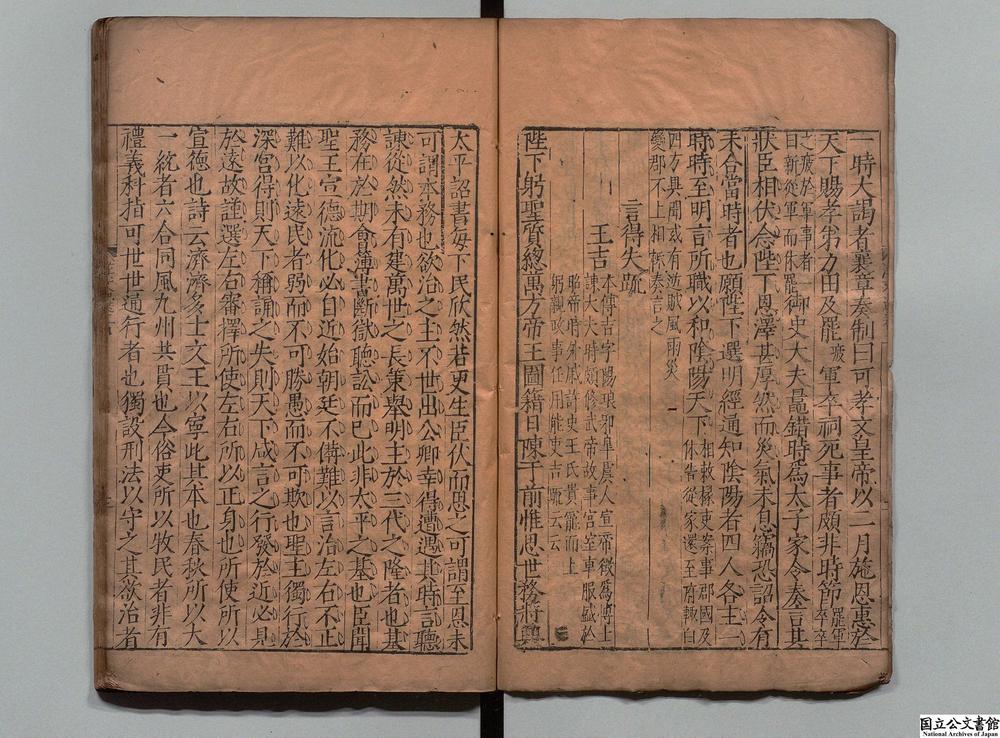 一時大謁者襄章奏制曰可孝文皇帝以二月施恩惠於
天下賜孝弟力田及罷軍卒祠死事者頗非時節
罷軍卒卒
之疲於軍事者一師
自新從軍而休罷
御史大夫鼂錯時爲太子家令奏言其
狀臣相伏念陛下恩澤甚厚然而災氣未息竊恐詔令有
未合當時者也願陛下選明經通知陰陽者四人各主一
時時至明言所職以和陰陽天下
相敕掾吏案事郡國及
休告從家還至府輒白
四方異聞或有逆賊風雨災
變郡不上相輒奏言之
言得失疏
王吉
本傳吉字子陽琅邪皐虞人宣帝徵爲博士
諫大夫時頗修武帝故事宮室車服盛於
昭帝時外戚許史王氏貴寵而上
躬親政事任用能吏吉疏云云
陛下躬聖質總萬方帝王圖籍日陳于前惟思世務將興
太平詔書每下民欣然若更生臣伏而思之可謂至恩未
可謂本務也欲治之主不世出公卿幸得遭遇其時言聽
諫從然未有建萬世之長策舉明主於三代之隆者也其
務在於期會簿書斷獄聽訟而已此非太平之基也臣聞
聖王宣德流化必自近始朝廷不備難以言治左右不正
難以化遠民者弱而不可勝愚而不可欺也聖主獨行於
深宮得則天下稱誦之失則天下咸言之行發於近必見
於遠故謹選左右審擇所使左右所以正身也所使所以
宣德也詩云濟濟多士文王以寧此其本也春秋所以大
一統者六合同風九州共貫也今俗吏所以牧民者非有
禮義科指可世世通行者也獨設刑法以守之其欲治者
国立公文書館
National Archives of Japan